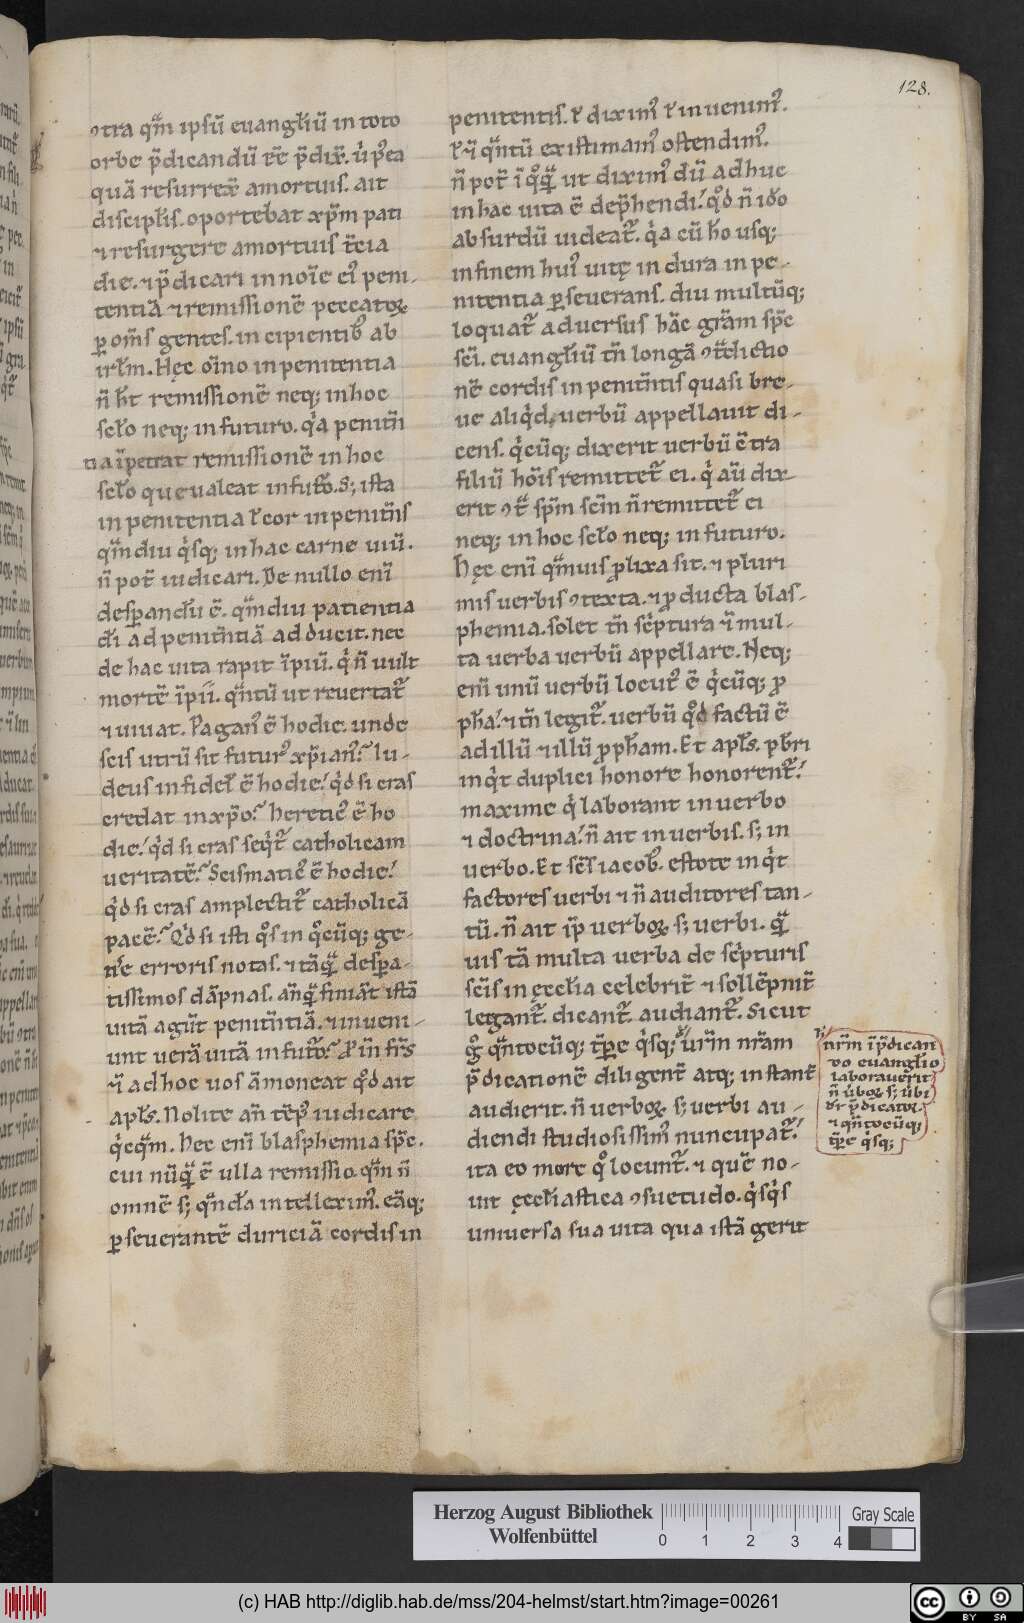 128.
ꝯtra qm̄ ipsū euangl̄iū in toto
orbe p̄dicandū e͞e p̄dix̄. u̇ pꝰea
quā resurrex̄ amortuis. ait
discipl̄is. oportebat xp̄m pati
⁊ resurgere amortuis t̄cia
die. ⁊ p̄dicari in noīe eiꝰ peni-
tentiā ⁊ remissionē peccatoꝝ
ꝑ om̄s gentes. incipientibꝰ ab
irl̄m. Hęc oīno inpenitentia
n̄ h̄t remissionē neq; in hoc
sc̄lo neq; in futuro. q̇a penitn̄
tia īpetrat remissionē in hoc
sc̄lo que ualeat in fut̄o. S; ista
inpenitentia ł cor inpenitn̄s
qm̄diu q̇sq; in hac carne uiū.
n̄ pot̄ iudicari. De nullo eni̅
desꝑandū ē. qm̄diu patientia
dī ad penitn̄tiā adducit. nec
de hac uita rapit īpiū. q̇ n̄ uult
mortē īpii. qn̄tū ut reuertat᷑
⁊ uiuat. Paganꝰ ē hodie. unde
scis utrū sit futurꝰ xp̄ianꝰ? Iu-
deus infidel̄ ē hodie! q̇d si cras
credat in xp̄o? hereticꝰ ē ho
die! q̇d si cras seq̇t᷑ catholicam
ueritatē? Scismaticꝰ ē hodie!
q̇d si cras amplectit᷑ catholicā
pacē? Q̇d si isti q̊s in q̊cūq; ge-
ne erroris notas. ⁊ tāq̄ desꝑa-
tissimos dāpnas. an̄q̄ finiāt istā
uitā agūt penitn̄tiā. ⁊ inueni-
unt uerā uitā in fut̄o? Proin̄ fr̄s
⁊̄ ad hoc uos āmoneat q̊d ait
apl̄s. Nolite an̄ tēpꝰ iudicare
q̇cq̄m. Hec eni̅ blasphemia sp̄c.
cui nūq̄ ē ulla remissio. qm̄ n̄
omnē s; qn̄dā intelleximꝰ. eāq;
ꝑseuerantē duriciā cordis in
penitentis. ł diximꝰ ł inuenimꝰ.
ł ⁊̄ qn̄tū existimamꝰ ostendimꝰ.
n̄ pot̄ ī q̊q̄ ut diximꝰ dū adhuc
in hac uita ē dep̄hendi! q̊d n̄ iđo
absurdū uideat᷑. q̇a cū h̊o usq;
in finem huiꝰ uitę in dura inpe-
nitentia ꝑseuerans. diu multūq;
loquat᷑ aduersus hāc gr̄am sp̄c
sc̄i. euangl̄iū tn̄ longā ꝯt̄dictio
nē cordis inpenitn̄tis quasi bre-
ue aliq̇d, uerbū appellauit di-
cens. q̇cūq; dixerit uerbū ꝯtra
filiū hoīs remittet᷑ ei. q̇ aū dix
erit ꝯt̄ sp̄m sc̄m n̄ remittet᷑ ei
neq; in hoc sc̄lo neq; in futuro.
Hęc eni̅ qm̄uis ꝓlixa sit. ⁊ pluri
mis uerbis ꝯtexta. ⁊ ꝓducta blas-
phemia. solet tn̄ sċptura ⁊̄ mul-
ta uerba uerbū appellare. Neq;
eni̅ unū uerbū locutꝰ ē q̇cūq; ꝓ
ph̄a! ⁊ tn̄ legit᷑. uerbū q̊d factū ē
ad illū ⁊ illū ꝓph̄am. Et apl̄s. pb̄ri
inq̇t duplici honore honorent᷑!
maxime q̇ laborant in uerbo
⁊ doctrina! n̄ ait in uerbis. s; in
uerbo. Et sc̄s iacobꝰ. estote inq̇t
factores uerbi ⁊ n̄ auditores tan-
tū. n̄ ait ip̄ uerboꝝ s; uerbi. q̄
uis tā multa uerba de sċpturis
sc̄is in ęccl̄ia celebrit̄ ⁊ sollēpnit̄
legant᷑. dicant᷑. audiant᷑. Sicut
g̊ qn̄tocūq; tp̄re q̇sq; ur̄m nr̄am
p̄dicationē diligent̄ atq; instant̄
audierit. n̄ uerboꝝ s; uerbi au-
diendi studiosissimꝰ nuncupat᷑!
ita eo more q̊ locunt᷑. ⁊ quē no-
uit ęccl̄iastica ꝯsuetudo. q̇sq̇s
uniuersa sua uita qua istā gerit
nr̄m ī p̄dican
do euangl̄io
laborauerit
n̄ ūboꝝ s; ūbi
dr̄ p̄dicator.
⁊ qn̄tocūq;
tp̄re q̇sq;
Herzog August Bibliothek
Wolfenbüttel
0 1 2 3 4
Gray Scale
(c) HAB http://diglib.hab.de/mss/204-helmst/start.htm?image=00261
cc BY SA